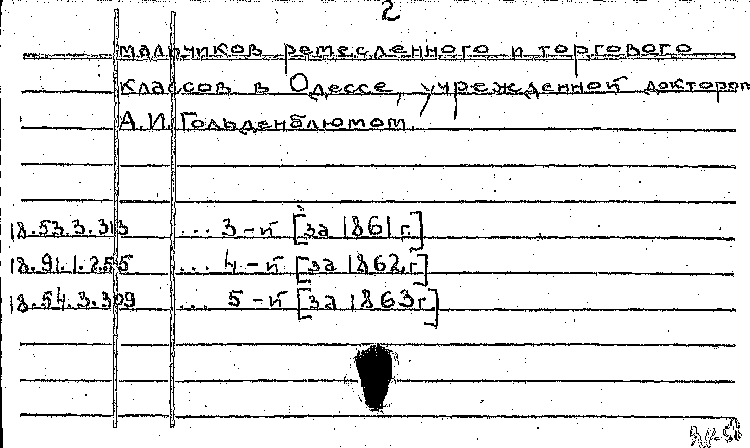 2
мальчиков ремесленного и торгового
классов в Одессе, учрежденной доктором
А.И. Гольденблюмом.
18.53.3.313 ... 3-й [за 1861 г.]
18.91.1.255 ... 4-й [за 1862 г.]
18.54.3.309 ... 5-й [за 1863 г.]